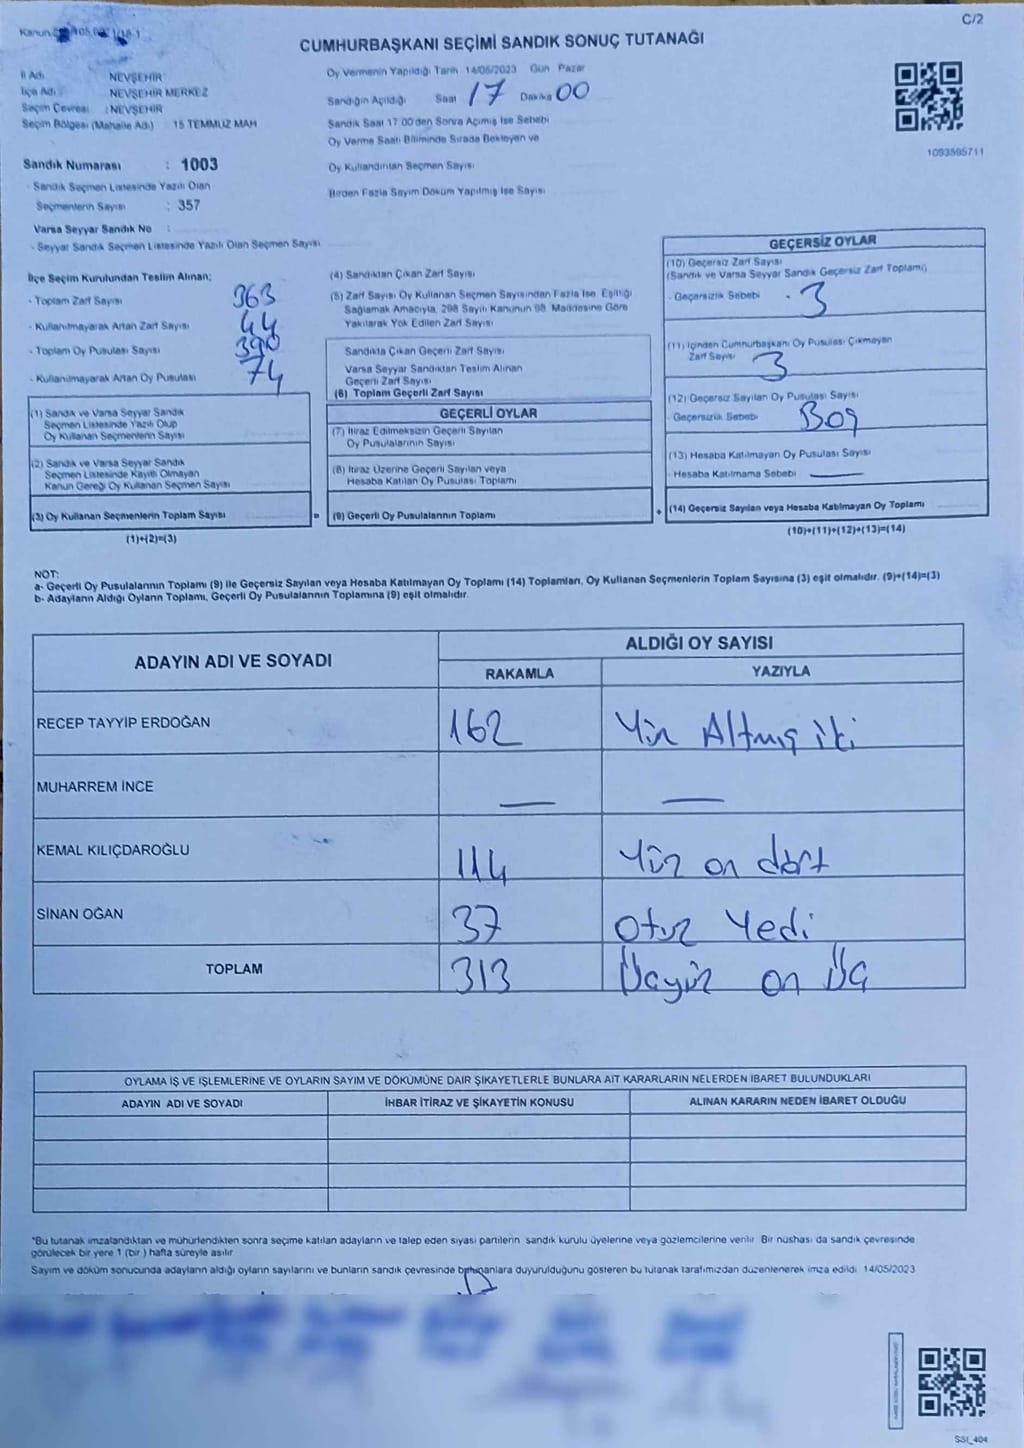 C/2
CUMHURBAŞKANI SEÇİMİ SANDIK SONUÇ TUTANAĞI
İl Adı : NEVŞEHİR
İlçe Adı : NEVŞEHİR MERKEZ
Seçim Çevresi : NEVŞEHİR
Seçim Bölgesi (Mahalle Adı) : 15 TEMMUZ MAH
Sandık Numarası : 1003
- Sandık Seçmen Listesinde Yazılı Olan
Seçmenlerin Sayısı : 357
Varsa Seyyar Sandık No :
- Seyyar Sandık Seçmen Listesinde Yazılı Olan Seçmen Sayısı
Oy Vermenin Yapıldığı Tarih 14/05/2023 Gün Pazar
Sandığın Açıldığı Saat 17 Dakika 00
Sandık Saat 17.00'den Sonra Açılmış İse Sebebi
Oy Verme Saati Bitiminde Sırada Bekleyen ve
Oy Kullandırılan Seçmen Sayısı
Birden Fazla Sayım Döküm Yapılmış İse Sayısı
1093595711
İlçe Seçim Kurulundan Teslim Alınan;
- Toplam Zarf Sayısı 363
- Kullanılmayarak Artan Zarf Sayısı 44
- Toplam Oy Pusulası Sayısı 390
- Kullanılmayarak Artan Oy Pusulası 74
(1) Sandık ve Varsa Seyyar Sandık
Seçmen Listesinde Yazılı Olup
Oy Kullanan Seçmenlerin Sayısı
(2) Sandık ve Varsa Seyyar Sandık
Seçmen Listesinde Kayıtlı Olmayan
Kanun Gereği Oy Kullanan Seçmen Sayısı
(3) Oy Kullanan Seçmenlerin Toplam Sayısı
(1)+(2)=(3)
(4) Sandıktan Çıkan Zarf Sayısı
(5) Zarf Sayısı Oy Kullanan Seçmen Sayısından Fazla İse, Eşitliği
Sağlamak Amacıyla, 298 Sayılı Kanunun 98. Maddesine Göre
Yakılarak Yok Edilen Zarf Sayısı
Sandıkta Çıkan Geçerli Zarf Sayısı
Varsa Seyyar Sandıktan Teslim Alınan
Geçerli Zarf Sayısı
(6) Toplam Geçerli Zarf Sayısı
GEÇERLİ OYLAR
(7) İtiraz Edilmeksizin Geçerli Sayılan
Oy Pusulalarının Sayısı
(8) İtiraz Üzerine Geçerli Sayılan veya
Hesaba Katılan Oy Pusulası Toplamı
= (9) Geçerli Oy Pusulalarının Toplamı +
GEÇERSİZ OYLAR
(10) Geçersiz Zarf Sayısı
(Sandık ve Varsa Seyyar Sandık Geçersiz Zarf Toplamı)
- Geçersizlik Sebebi - 3
(11) İçinden Cumhurbaşkanı Oy Pusulası Çıkmayan
Zarf Sayısı 3
(12) Geçersiz Sayılan Oy Pusulası Sayısı
- Geçersizlik Sebebi Boş
(13) Hesaba Katılmayan Oy Pusulası Sayısı
- Hesaba Katılmama Sebebi —
(14) Geçersiz Sayılan veya Hesaba Katılmayan Oy Toplamı
(10)+(11)+(12)+(13)=(14)
NOT:
a- Geçerli Oy Pusulalarının Toplamı (9) ile Geçersiz Sayılan veya Hesaba Katılmayan Oy Toplamı (14) Toplamları, Oy Kullanan Seçmenlerin Toplam Sayısına (3) eşit olmalıdır. (9)+(14)=(3)
b- Adayların Aldığı Oyların Toplamı, Geçerli Oy Pusulalarının Toplamına (9) eşit olmalıdır.
ADAYIN ADI VE SOYADI ALDIĞI OY SAYISI
RAKAMLA YAZIYLA
RECEP TAYYİP ERDOĞAN 162 Yüz Altmış iki
MUHARREM İNCE — —
KEMAL KILIÇDAROĞLU 114 Yüz on dört
SİNAN OĞAN 37 Otuz Yedi
TOPLAM 313 Üçyüz on üç
OYLAMA İŞ VE İŞLEMLERİNE VE OYLARIN SAYIM VE DÖKÜMÜNE DAİR ŞİKAYETLERLE BUNLARA AİT KARARLARIN NELERDEN İBARET BULUNDUKLARI
ADAYIN ADI VE SOYADI İHBAR İTİRAZ VE ŞİKAYETİN KONUSU ALINAN KARARIN NEDEN İBARET OLDUĞU
"Bu tutanak imzalandıktan ve mühürlendikten sonra seçime katılan adayların ve talep eden siyasi partilerin sandık kurulu üyelerine veya gözlemcilerine verilir. Bir nüshası da sandık çevresinde
görülecek bir yere 1 (bir) hafta süreyle asılır
Sayım ve döküm sonucunda adayların aldığı oyların sayılarını ve bunların sandık çevresinde bulunanlara duyurulduğunu gösteren bu tutanak tarafımızdan düzenlenerek imza edildi. 14/05/2023
SSI_404